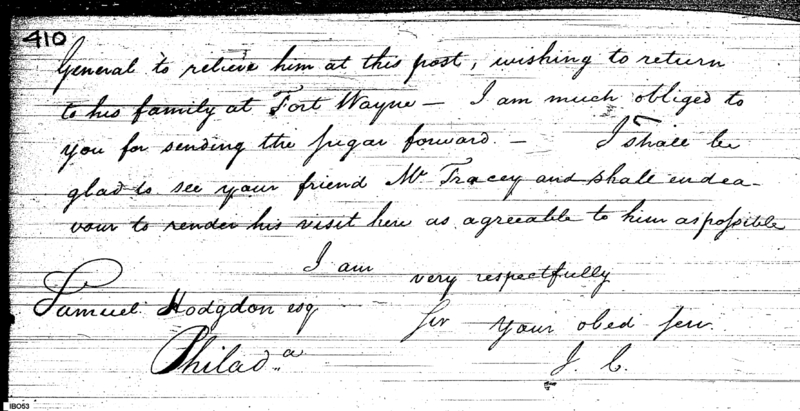 410
General to relieve him at this post, wishing to return
to his family at Fort Wayne — I am much obliged to
you for sending the sugar forward. — I shall be
glad to see your friend Mr Tracey and shall endea-
vour to render his visit here as agreeable to him as possible
I am very respectfully
Samuel Hodgdon esq Sir your obed Serv.
Philad.a J. C.
IBO63